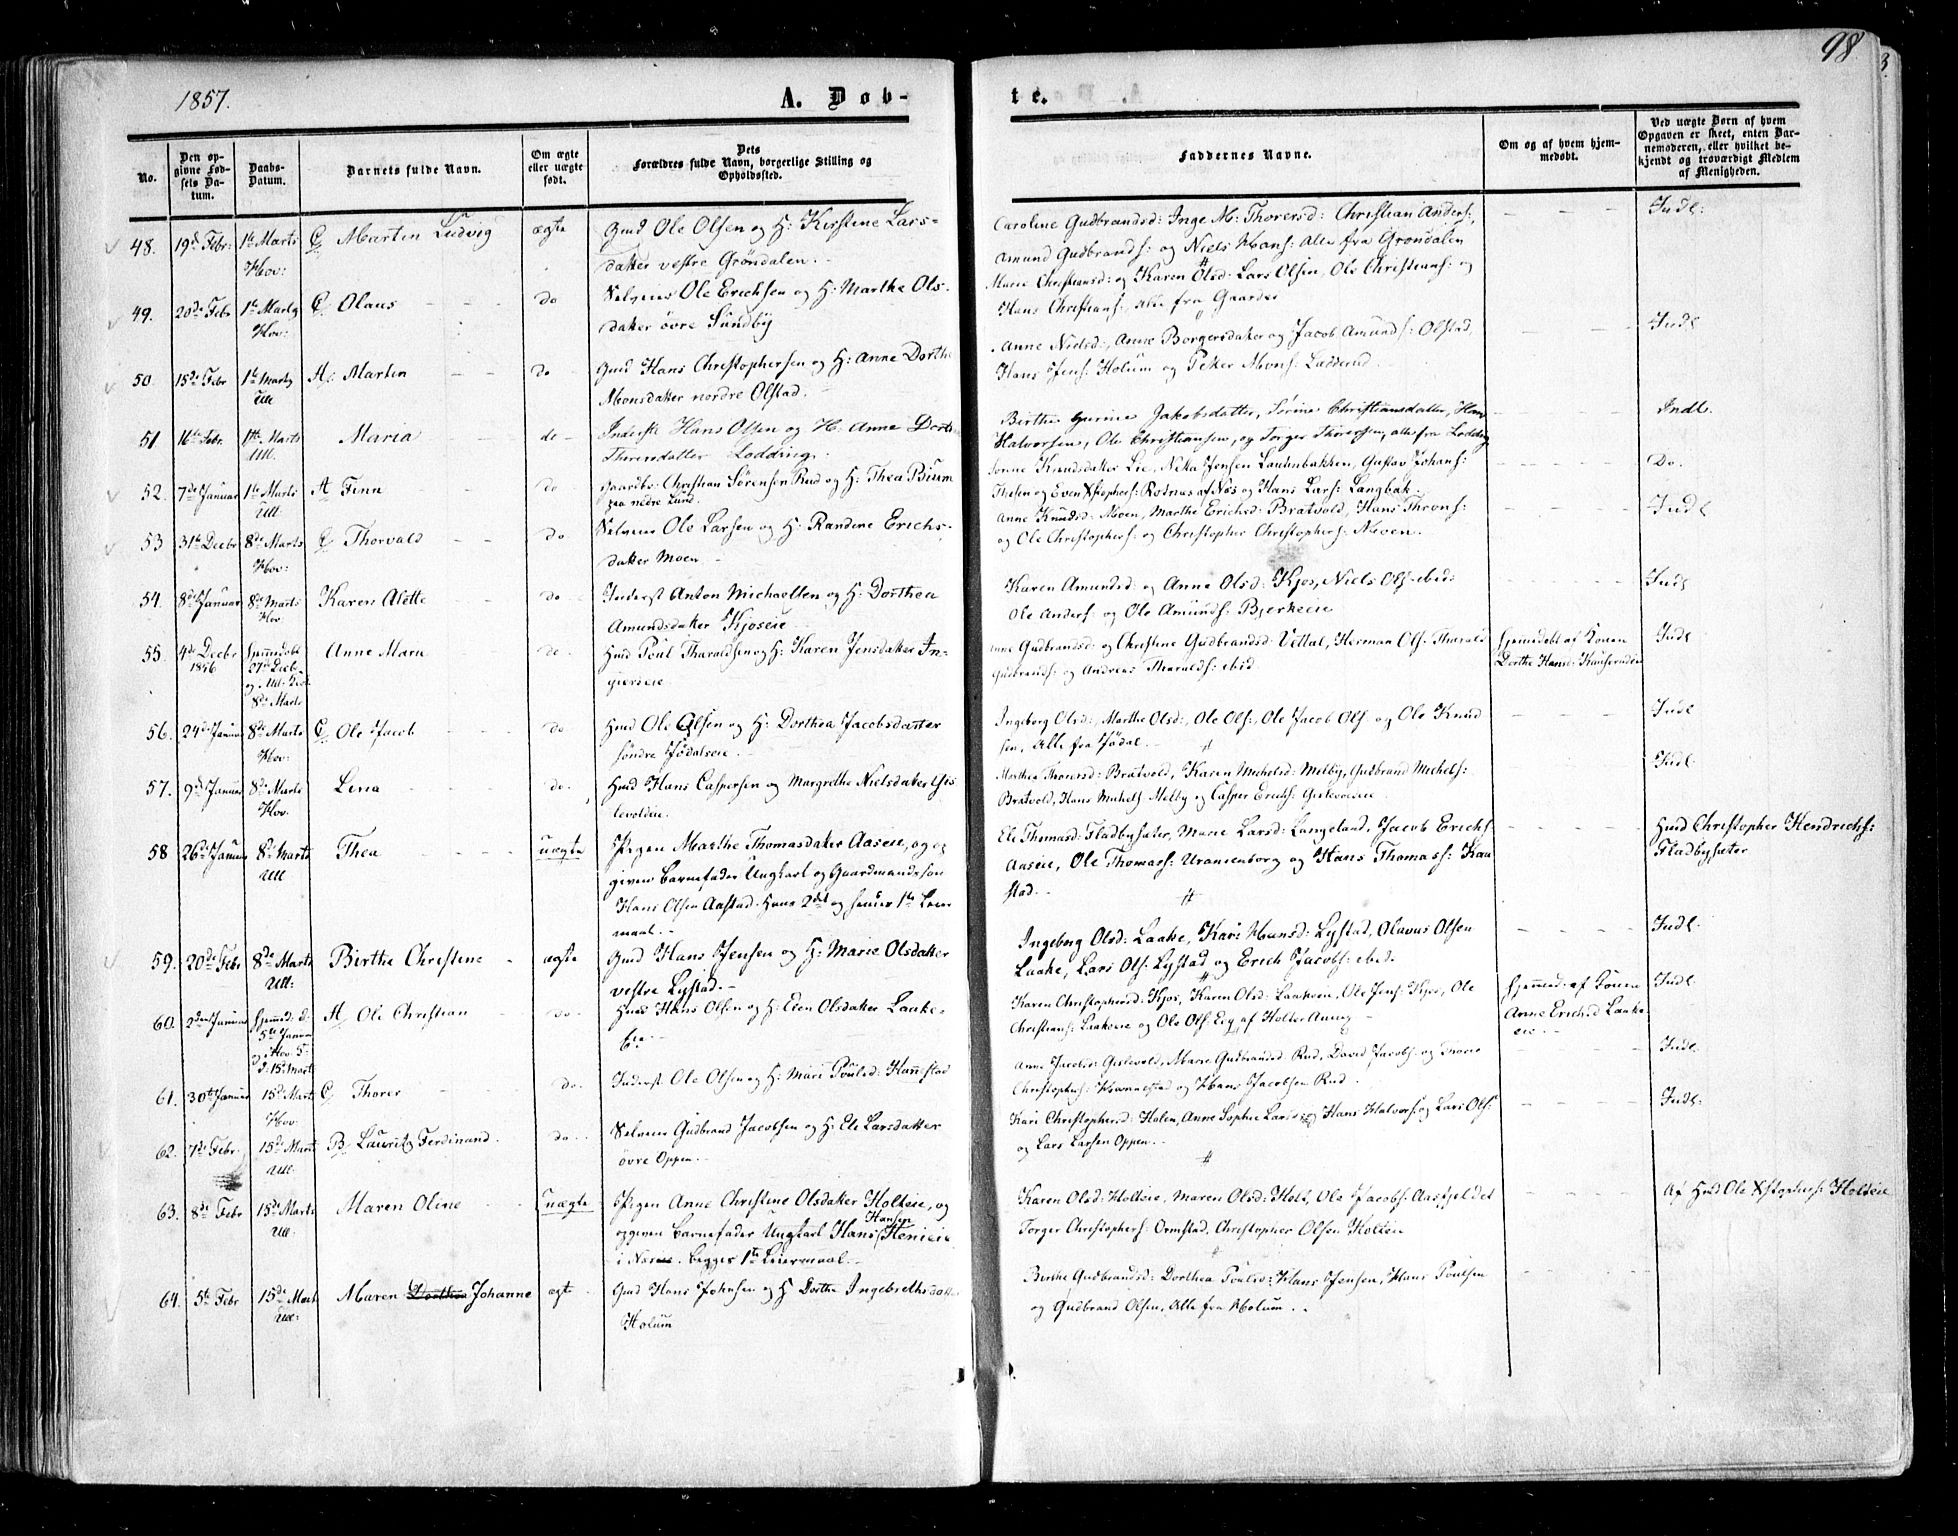 1857.
A. Døb-
te.
98
No.
Den op-
givne Fød-
sels Da-
tum.
Daabs-
Datum.
Barnets fulde Navn.
Om ægte
eller uægte
født.
Dets
Forældres fulde Navn, borgerlige Stilling og
Opholdssted.
Faddernes Navne.
Om og af hvem hjem-
medøbt.
Ved uægte Børn af hvem
Opgaven er skeet, enten Bar-
nemoderen, eller hvilket be-
kjendt og troværdigt Medlem
af Menigheden.
48. 19de Febr: 1ste Marts Martin Ludvig ægte Gmd Ole Olsen og H: Kirstine Lars-
Hov: datter vestre Grøndalen.
Caroline Gudbrandsd: Inge M: Thorersd: Christian Anders:
Amund Gudbrands: og Niels Hans: alle fra Grøndalen
Indl:
49. 20de Febr 1ste Marts Olaus do Selveier Ole Erichsen og H: Marthe Ols-
Hov: datter øvre Sundby
Marie Christiansd: og Karen Olsd: Lars Olsen, Ole Christians: og
Hans Christians: alle fra Gaarder
Indl
50. 15de Febr 1ste Marts A: Martin do Gmd Hans Christophersen og H: Anne Dorthe
Ull Monsdatter nordre Olstad.
Anne Nielsd:, Anne Borgersdatter og Jacob Amunds: Olstad,
Hans Jens: Holum og Peter Mons: Ladderud
51. 16de Febr. 1ste Marts Maria do Inderst Hans Olsen og H. Anne Dorte
Ull. Thoresdatter Lodding.
Birthe Gurine Jakobsdatter, Sørine Christiansdatter, Hans
Halvorsen, Ole Christiansen, og Torger Thorersen, alle fra Lodding
Indl.
52. 7de Januar 1ste Marts A Finn do Gaardbr: Christian Sørensen Rud og H: Thea Bium
Ull: paa nedre Lund.
Knudsdatter Lie, Jensen Lautenbakken, Gustav Johans:
Thesen og Even Xstophers: Rotnæs af Næs og Hans Lars: Langbak.
Do.
53 31te Decbr 8de Marts Thorvald do Selveier Ole Larsen og H: Randine Erichs-
Hov: datter Moen
Anne Knudsd: Moen, Marthe Erichsd: Bratvold, Hans Throns:
og Ole Christophers: og Christopher Christophers: Moen.
Indl
54. 8de Januar 8de Marts Karen Alette do Inderst Anton Michaelsen og H: Dorthea
Hov Amundsdatter Kjoseie
Karen Amundsd: og Anne Olsd: Kjos, Niels Ols: ibid:
Ole Anders: og Ole Amunds: Bjerkeeie
Indl
55. 4de Decbr 1856 hjemmedøbt 27de Decbr og Ull: 8de Marts Anne Maria do Hmd Poul Tharaldsen og H: Karen Jensdatter In-
giereie
Anne Gudbrandsd: og Christine Gudbrandsd: Vittal, Herman Ols: Tharald
Gudbrands: og Andreas Tharalds: ibid
hjemedøbt af Konen
Dorthe Hansd:
Indl
56. 24de Januar 8de Marts Ole Jacob do Hmd Ole Olsen og H: Dorthea Jacobsdatter
Hov: søndre Jødalseie
Ingeborg Olsd:, Marthe Olsd:, Ole Ols:, Ole Jacob Ols: og Ole Knud
sen, Alle fra Jødal.
Indl
57. 9de Januar 8de Marts Lena do. Hmd Hans Caspersen og Margrethe Nielsdatter Gis
Hov. levoldeie.
Marthea Thorersd: Bratvold, Karen Michelsd: Melby, Gudbrand Michels:
Bratvold, Hans Michels: Melby og Casper Erichs: Gislevoldeie.
Indl
58 26de Januar 8de Marts Thea uægte Pigen Marthe Thomasdatter Aaseie, og op
Ull given Barnefader Ungkarl og Gaardmandssøn
Hans Olsen Aastad. Hans 2det og hendes 1ste Leier
maal.
Ele Thomasd: Fladbysæter, Marie Larsd: Langeland, Jacob Erichs:
Aaseie, Ole Thomas: Uranienborg og Hans Thomas: Kau
stad.
Hmd Christopher Hendrichs:
Fladbysæter
59. 20de Febr 8de Marts Birthe Christine ægte Gmd Hans Jensen og H: Marie Olsdatter
Ull: vestre Lystad.
Ingeborg Olsd: Laake, Kari Hansd: Lystad, Olavus Olsen
Laake, Lars Ols: Lystad og Erich Jacobs: ibid.
Indl
60. 2den Januar hjemmed: d. 5te Januar og i Hov: d. 15 Marts A Ole Christian do. Hmd Hans Olsen og H: Elen Olsdatter Laake-
eie.
Karen Christophersd: Kjos, Karen Olsd: Laakeeie, Ole Jens: Kjos, Ole
Christians: Laakeeie og Ole Ols: Eig af Holter Annex
hjemmed: af Konen
Anne Erichsd Laake
eie
Indl
61. 30te Januar 15de Marts Thorer do. Inderst Ole Olsen og H: Mari Poulsd: Hannestad
Hov
Anne Jacobsd: Gislevold, Marie Gudbrandsd: Rud, David Jacobs: og Thorer
Christophers: Hannestad og Hans Jacobsen Rud.
Indl
62. 7de Febr. 15de Marts B. Lauritz Ferdinand. do. Selveier Gudbrand Jacobsen og H: Ele Larsdatter
Ull. øvre Oppen.
Kari Christophersd: Holen, Anne Sophie Larsd: Hans Halvors: og Lars Ols:
og Lars Larsen Oppen.
Indl:
63. 8de Febr 15de Marts Maren Oline Uægte Pigen Anne Christine Olsdatter Holteie, og
Ull: opgiven Barnefader Ungkarl Hans Hansen Henieie
i Næsne. begges 1ste Leiermaal.
Karen Olsd: Holteie, Maren Olsd: Holt, Ole Jacobs: Aasfjeldet
Torger Christophers: Ormstad, Christopher Olsen Holteie
Af Hmd Ole Xstophers: Holteie
64. 5te Febr 15de Marts Maren Dorthea Johanne ægt Gmd Hans Johnsen og H Dorthe Ingebrethsdatter
Ull: Holum
Birthe Gudbrandsd: Dorthea Poulsd: Hans Jensen, Hans Poulsen
og Gudbrand Olsen, Alle fra Holum.